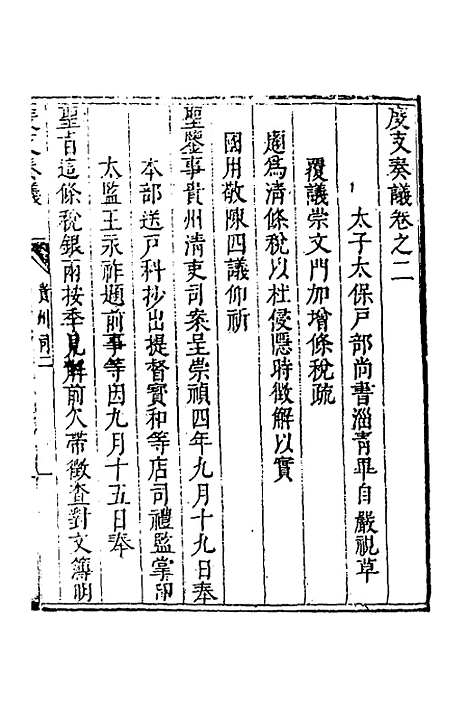 度支奏議卷之二
太子太保戶部尚書淄青畢自嚴視草
覆議崇文門加增條稅疏
題為清條稅以杜侵隱時徵解以實
國用敬陳四議仰祈
聖鑒事貴州清吏司案呈崇禎四年九月十九日奉
本部送戶科抄出提督寶和等店司禮監掌印
太監王永祚題前事等因九月十五日奉
聖旨這條稅銀兩按季見解前欠帶徵查對文簿明
度支奏議
貴州司二